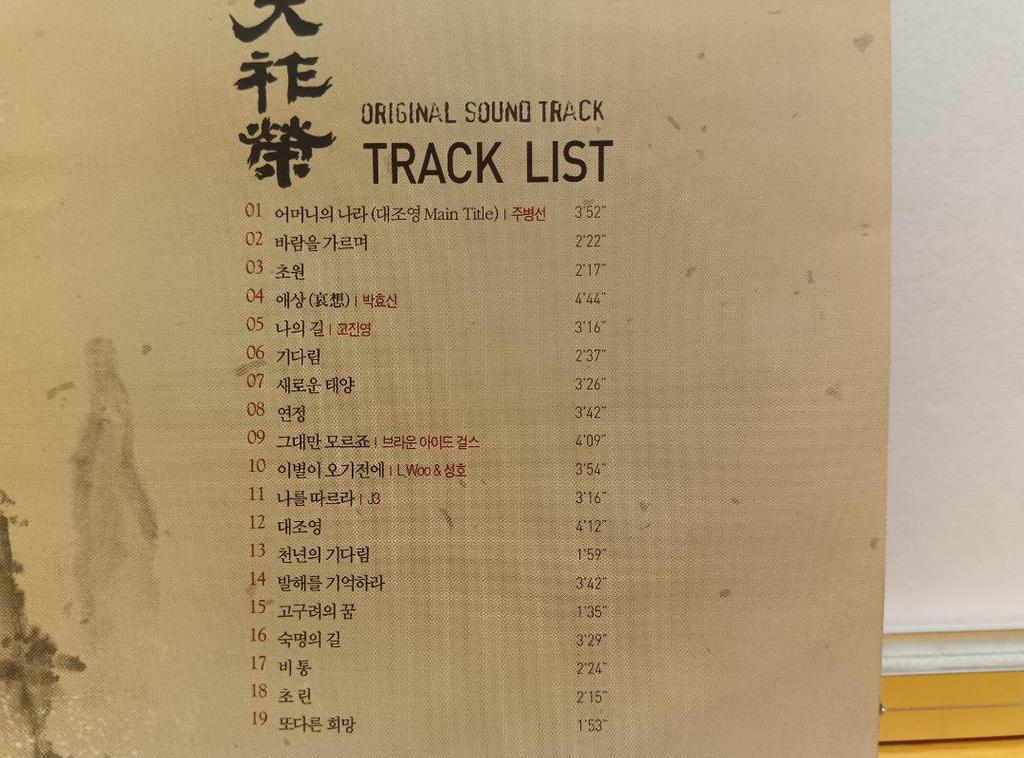 大
祚
榮
ORIGINAL SOUND TRACK
TRACK LIST
01 어머니의 나라 (대조영 Main Title) | 주병선 3'52"
02 바람을 가르며 2'22"
03 초원 2'17"
04 애상 (哀想) | 박효신 4'44"
05 나의 길 | 고진영 3'16"
06 기다림 2'37"
07 새로운 태양 3'26"
08 연정 3'42"
09 그대만 모르죠 | 브라운 아이드 걸스 4'09"
10 이별이 오기전에 | L.Woo & 성호 3'54"
11 나를 따르라 | J3 3'16"
12 대조영 4'12"
13 천년의 기다림 1'59"
14 발해를 기억하라 3'42"
15 고구려의 꿈 1'35"
16 숙명의 길 3'29"
17 비통 2'24"
18 초린 2'15"
19 또다른 희망 1'53"